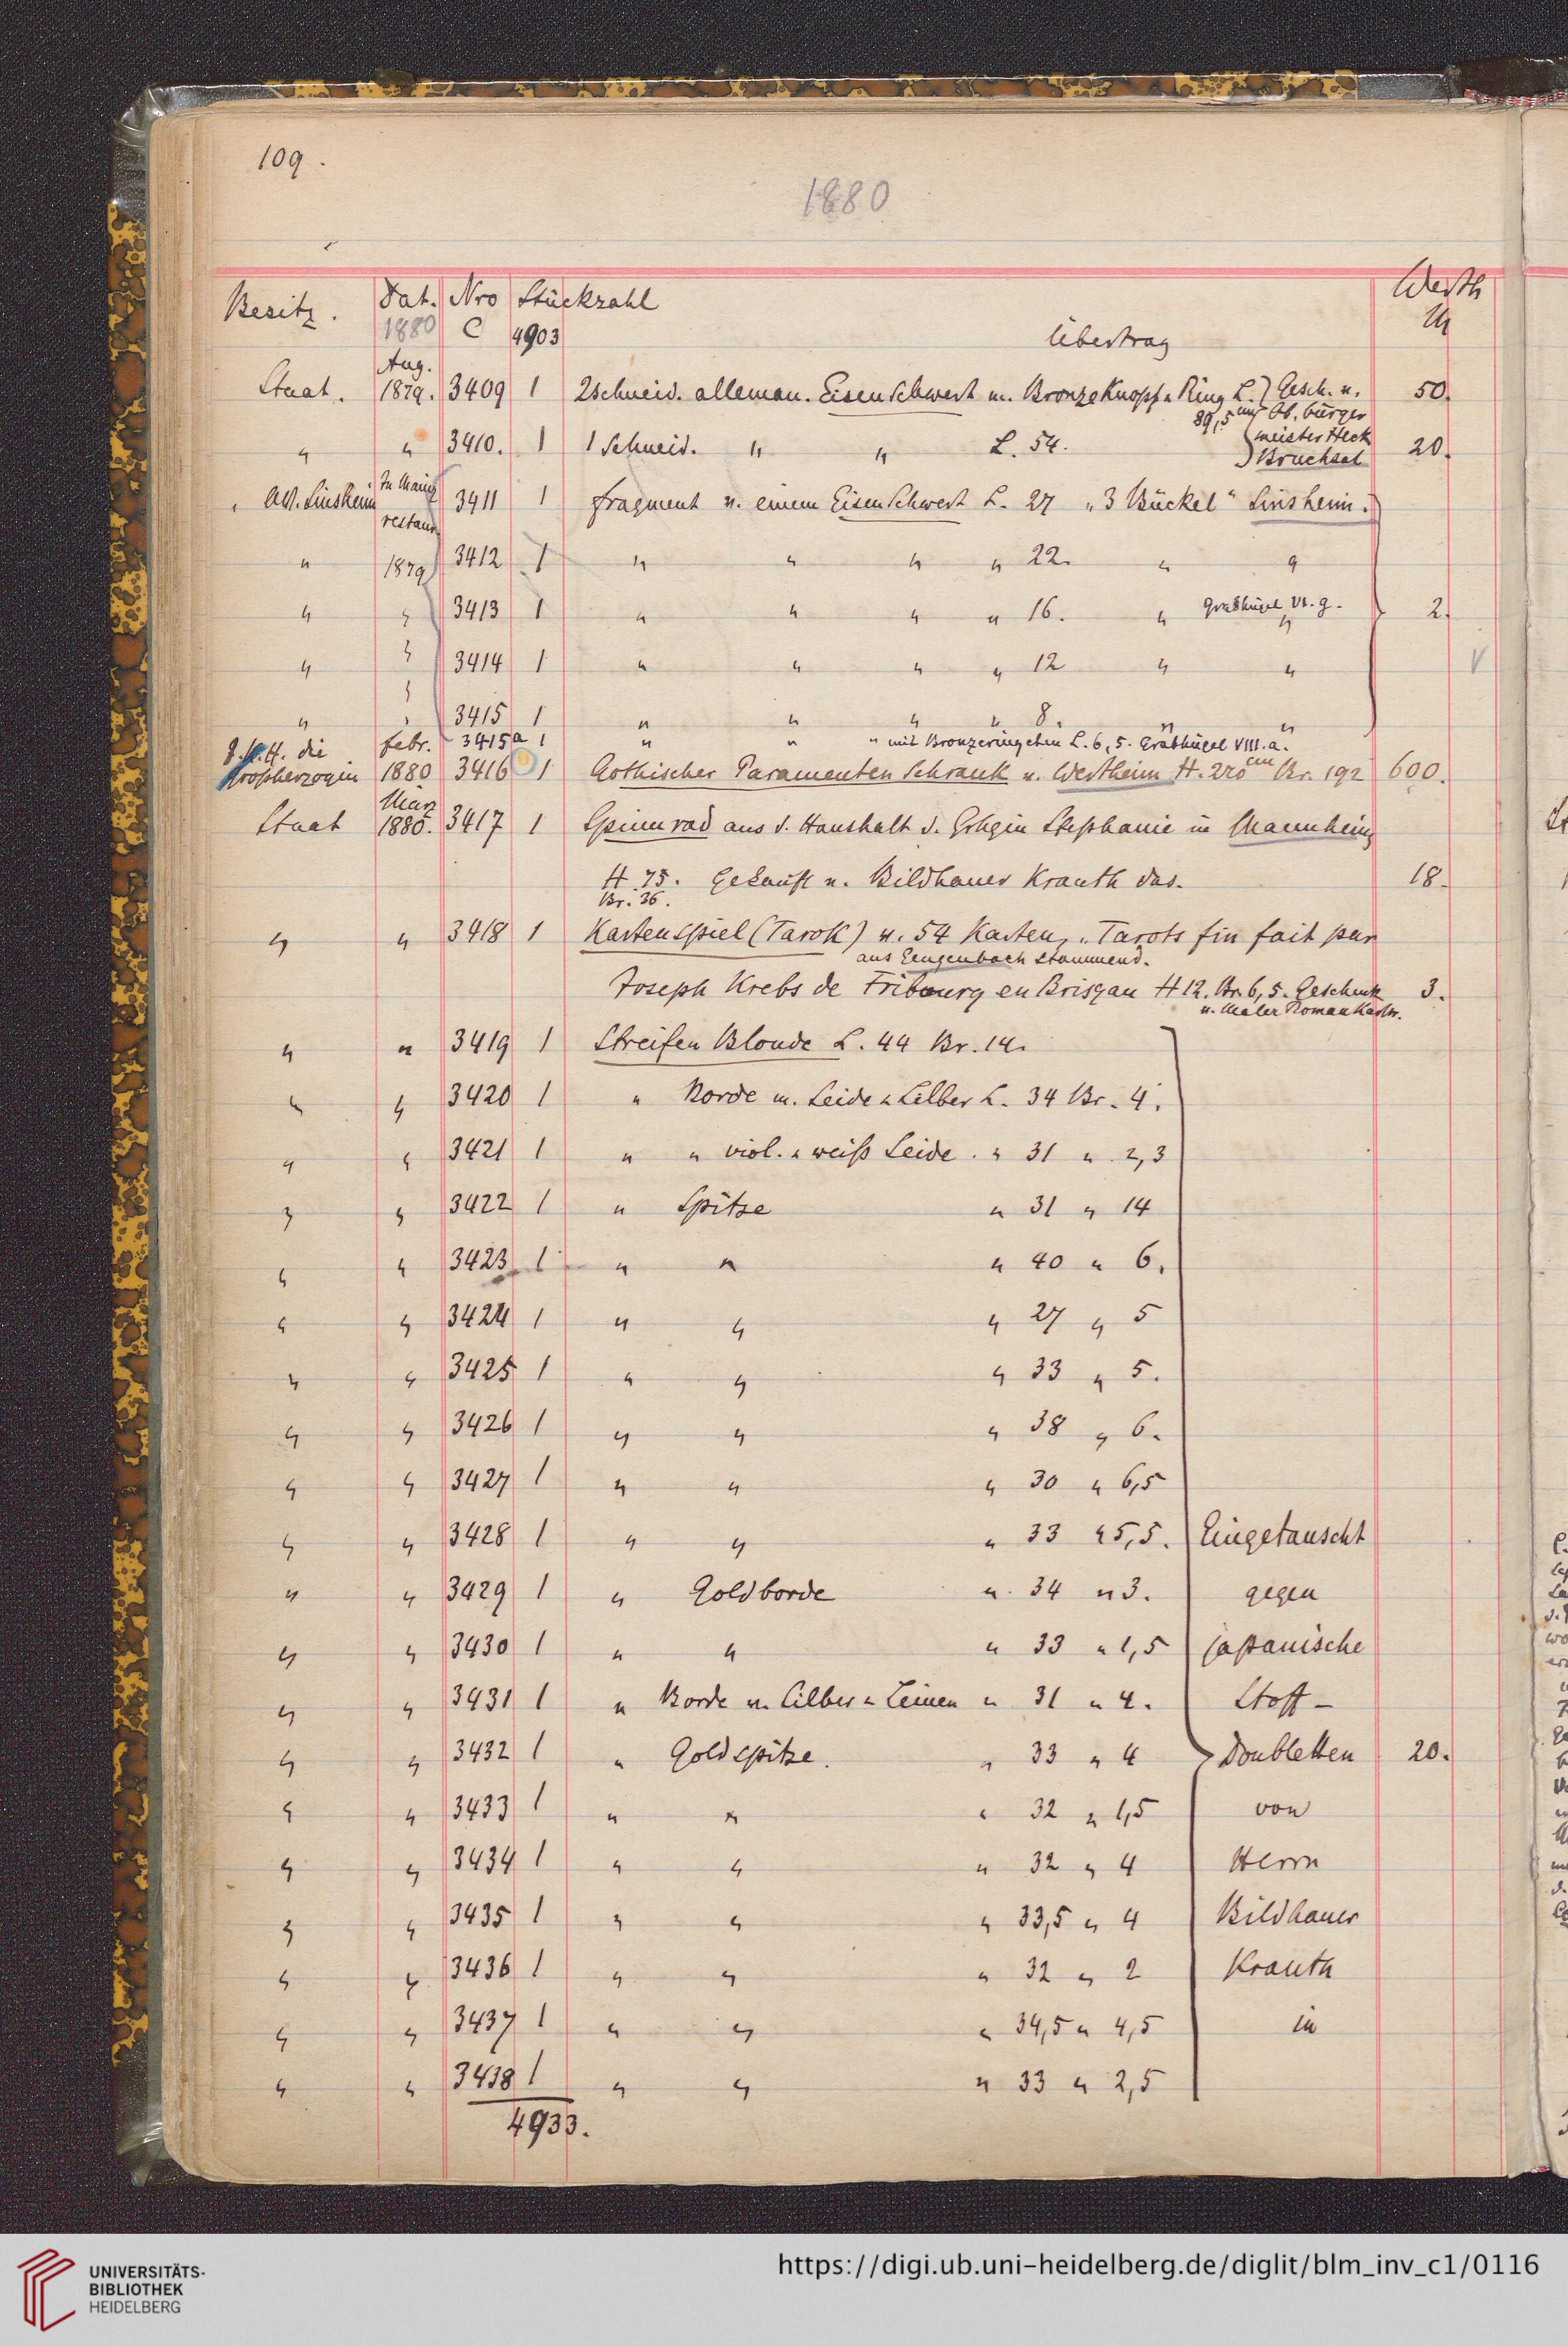 109.
1880
Besitz. Dat. Nro Stückzahl Werth
1880 C 4903 Übertrag M
Aug.
Staat. 1879. 3409 1 2schneid. alleman. Eisenschwert m. Bronzeknopf u Ring L. } Gesch. v. 50.
89,5 cm Ob. bürger
" " 3410. 1 1 Schneid. " " L. 54. meister Heck 20.
Bruchsal
AV. Sinsheim In Mainz 3411 1 Fragment v. einem Eisenschwert L. 27 "3 Bückel" Sinsheim.
restaur.
" 1879 3412 1 " " " " 22. " "
" " 3413 1 " " " " 16. " Grabhügel VI. g. " 2.
" " 3414 1 " " " " 12 " "
" " 3415 1 " " " " 8. " "
Febr. 3415a 1 " " " mit Bronzeringchen L. 6,5. Grabhügel VIII. a.
I.K.H. die
Grossherzogin 1880 3416 1 Gothischer Paramenten Schrank v. Wertheim H. 220 cm Br. 192 600.
März
Staat 1880. 3417 1 Spinnrad aus d. Haushalt d. Grhgin Stephanie in Mannheim
H. 75. Gekauft v. Bildhauer Krauth das. 18.
Br. 36.
" " 3418 1 Kartenspiel (Tarok) v. 54 Karten, "Tarots fin fait par
aus Gengenbach stammend.
Joseph Krebs de Fribourg en Brisgau H 12. Br. 6,5. Geschenk 3.
v. Maler Roman Kastn.
" " 3419 1 Streifen Blonde L. 44 Br. 14.
" " 3420 1 " Borde m. Seide u Silber L. 34 Br. 4.
" " 3421 1 " " viol. u weiß Seide. " 31 " 2,3
" " 3422 1 " Spitze " 31 " 14
" " 3423 1 " " " 40 " 6.
" " 3424 1 " " " 27 " 5
" " 3425 1 " " " 33 " 5.
" " 3426 1 " " " 38 " 6.
" " 3427 1 " " " 30 " 6,5
" " 3428 1 " " " 33 " 5,5. Eingetauscht
" " 3429 1 " Goldborde " 34 " 3. gegen
" " 3430 1 " " " 33 " 1,5 japanische
" " 3431 1 " Borde v. Silber u Leinen " 31 " 4. Stoff-
" " 3432 1 " Goldspitze. " 33 " 4 Doubletten 20.
" " 3433 1 " " " 32 " 1,5 von
" " 3434 1 " " " 32 " 4 Herrn
" " 3435 1 " " " 33,5 " 4 Bildhauer
" " 3436 1 " " " 32 " 2 Krauth
" " 3437 1 " " " 34,5 " 4,5 in
" " 3438 1 " " " 33 " 2,5
4933.
UNIVERSITÄTS-
BIBLIOTHEK
HEIDELBERG
https://digi.ub.uni-heidelberg.de/diglit/blm_inv_c1/0116